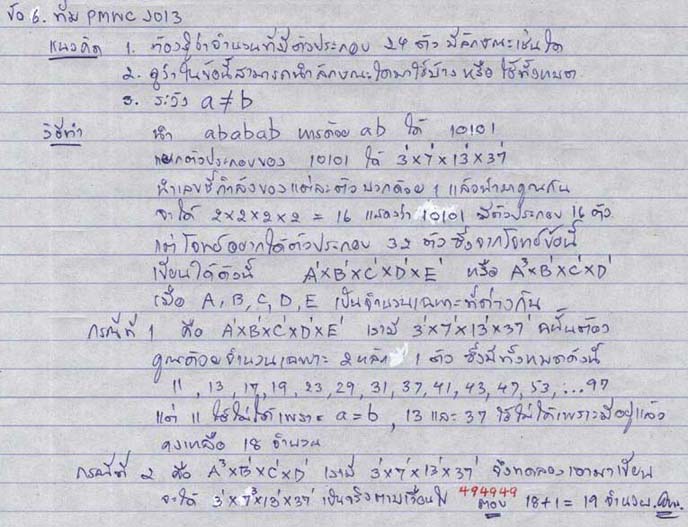 ข้อ 6. ทีม PMWC 2013
แนวคิด 1. ต้องรู้ว่าจำนวนที่มีตัวประกอบ 24 ตัว มีลักษณะเช่นใด
2. ดูว่าในข้อนี้สามารถนำลักษณะใดมาใช้บ้าง หรือ ใช้ทั้งหมด
3. ระวัง a ≠ b
วิธีทำ นำ ababab หารด้วย ab ได้ 10101
แยกตัวประกอบของ 10101 ได้ 3¹×7¹×13¹×37¹
นำเลขชี้กำลังของแต่ละตัว บวกด้วย 1 แล้วนำมาคูณกัน
จะได้ 2×2×2×2 = 16 แสดงว่า 10101 มีตัวประกอบ 16 ตัว
แต่ โจทย์อยากได้ตัวประกอบ 32 ตัว ซึ่งจากโจทย์ข้อนี้
เขียนได้ดังนี้ A¹×B¹×C¹×D¹×E¹ หรือ A³×B¹×C¹×D¹
เมื่อ A, B, C, D, E เป็นจำนวนเฉพาะที่ต่างกัน
กรณีที่ 1 คือ A¹×B¹×C¹×D¹×E¹ เรามี 3¹×7¹×13¹×37¹ ฉะนั้นต้อง
คูณด้วยจำนวนเฉพาะ 2 หลัก 1 ตัว ซึ่งมีทั้งหมดดังนี้
11, 13, 17, 19, 23, 29, 31, 37, 41, 43, 47, 53, ...97
แต่ 11 ใช้ไม่ได้เพราะ a=b, 13 และ 37 ใช้ไม่ได้เพราะมีอยู่แล้ว
คงเหลือ 18 จำนวน
กรณีที่ 2 คือ A³×B¹×C¹×D¹ เรามี 3¹×7¹×13¹×37¹ จึงทดลองเอามาเขียน
จะได้ 3¹×7³×13¹×37¹ เป็นจริงตามเงื่อนไข 494949 ตอบ 18+1 = 19 จำนวน